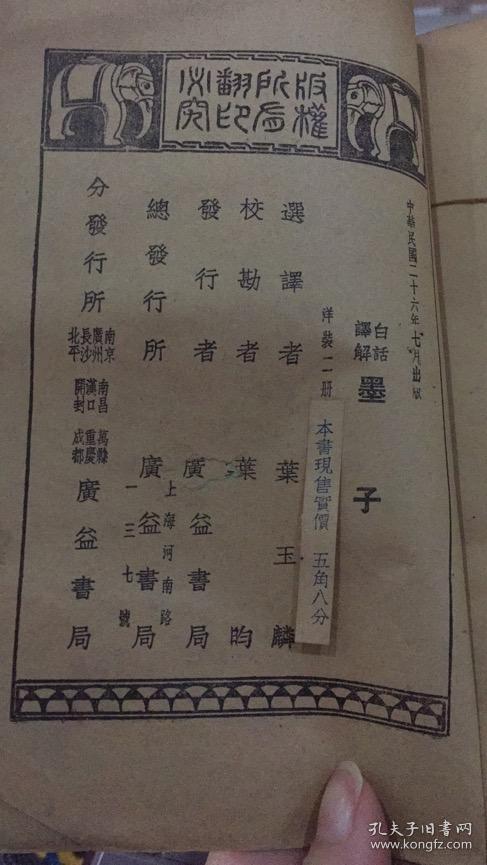 版權
所有
翻印
必究
中華民國二十六年七月出版
白話
譯解
墨子
洋裝二册
本書現售實價 五角八分
選譯者 葉玉麟
校勘者 葉昀
發行者 廣益書局
總發行所 上海河南路
一三七號
廣益書局
分發行所 南京 南昌 萬縣
廣州 漢口 重慶
長沙 開封 成都
北平
廣益書局
孔夫子旧书网
www.kongfz.com